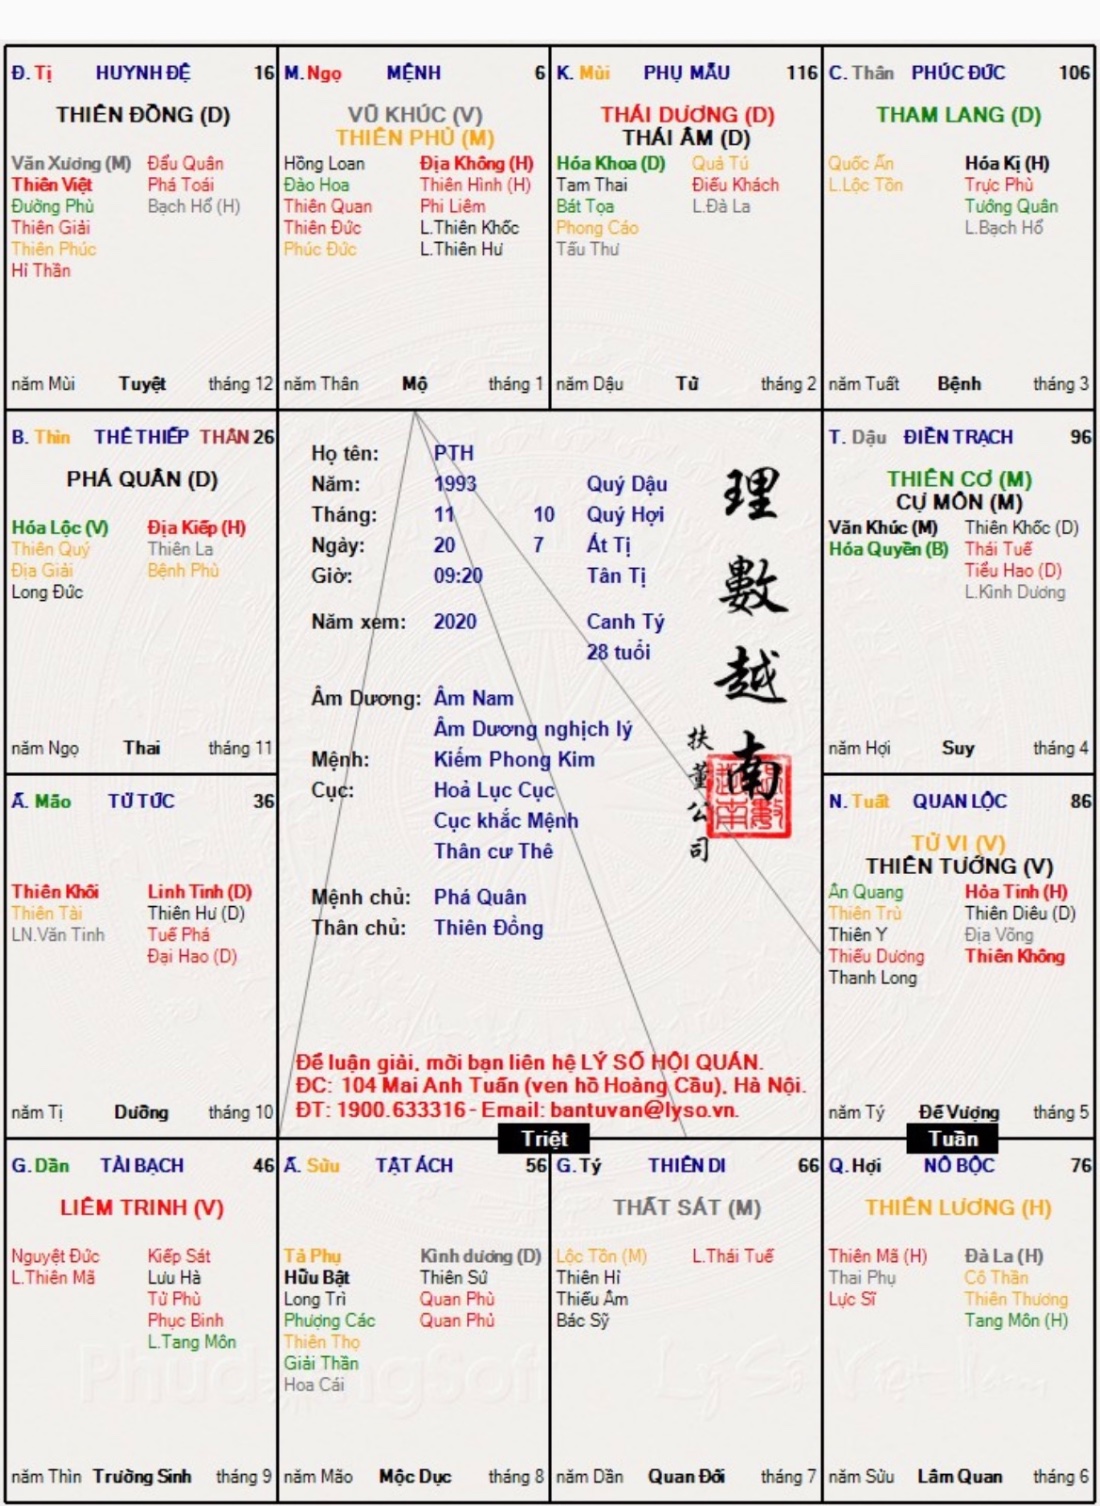 Đ. Tị HUYNH ĐỆ 16
THIÊN ĐỒNG (D)
Văn Xương (M) Đẩu Quân
Thiên Việt Phá Toái
Đường Phù Bạch Hổ (H)
Thiên Giải
Thiên Phúc
Hỉ Thần
năm Mùi Tuyệt tháng 12
M. Ngọ MỆNH 6
VŨ KHÚC (V)
THIÊN PHỦ (M)
Hồng Loan Địa Không (H)
Đào Hoa Thiên Hình (H)
Thiên Quan Phi Liêm
Thiên Đức L.Thiên Khốc
Phúc Đức L.Thiên Hư
năm Thân Mộ tháng 1
K. Mùi PHỤ MẪU 116
THÁI DƯƠNG (D)
THÁI ÂM (D)
Hóa Khoa (D) Quả Tú
Tam Thai Điếu Khách
Bát Tọa L.Đà La
Phong Cáo
Tấu Thư
năm Dậu Tử tháng 2
C. Thân PHÚC ĐỨC 106
THAM LANG (D)
Quốc Ấn Hóa Kị (H)
L.Lộc Tồn Trực Phù
Tướng Quân
L.Bạch Hổ
năm Tuất Bệnh tháng 3
B. Thìn THÊ THIẾP THÂN 26
PHÁ QUÂN (D)
Hóa Lộc (V) Địa Kiếp (H)
Thiên Quý Thiên La
Địa Giải Bệnh Phù
Long Đức
năm Ngọ Thai tháng 11
Họ tên: PTH
Năm: 1993 Quý Dậu
Tháng: 11 10 Quý Hợi
Ngày: 20 7 Ất Tị
Giờ: 09:20 Tân Tị
Năm xem: 2020 Canh Tý
28 tuổi
Âm Dương: Âm Nam
Âm Dương nghịch lý
Mệnh: Kiếm Phong Kim
Cục: Hoả Lục Cục
Cục khắc Mệnh
Thân cư Thê
Mệnh chủ: Phá Quân
Thân chủ: Thiên Đồng
理數越南
扶董公司
Để luận giải, mời bạn liên hệ LÝ SỐ HỘI QUÁN.
ĐC: 104 Mai Anh Tuấn (ven hồ Hoàng Cầu), Hà Nội.
ĐT: 1900.633316 - Email: bantuvan@lyso.vn.
T. Dậu ĐIỀN TRẠCH 96
THIÊN CƠ (M)
CỰ MÔN (M)
Văn Khúc (M) Thiên Khốc (D)
Hóa Quyền (B) Thái Tuế
Tiểu Hao (D)
L.Kình Dương
năm Hợi Suy tháng 4
Ấ. Mão TỬ TỨC 36
Thiên Khôi Linh Tinh (D)
Thiên Tài Thiên Hư (D)
LN.Văn Tinh Tuế Phá
Đại Hao (D)
năm Tị Dưỡng tháng 10
N. Tuất QUAN LỘC 86
TỬ VI (V)
THIÊN TƯỚNG (V)
Ân Quang Hỏa Tinh (H)
Thiên Trù Thiên Diêu (D)
Thiên Y Địa Võng
Thiếu Dương Thiên Không
Thanh Long
năm Tý Đế Vượng tháng 5
Triệt
Tuần
G. Dần TÀI BẠCH 46
LIÊM TRINH (V)
Nguyệt Đức Kiếp Sát
L.Thiên Mã Lưu Hà
Tử Phù
Phục Binh
L.Tang Môn
năm Thìn Trường Sinh tháng 9
Ấ. Sửu TẬT ÁCH 56
Tả Phụ Kình dương (D)
Hữu Bật Thiên Sứ
Long Trì Quan Phù
Phượng Các Quan Phủ
Thiên Thọ
Giải Thần
Hoa Cái
năm Mão Mộc Dục tháng 8
G. Tý THIÊN DI 66
THẤT SÁT (M)
Lộc Tồn (M) L.Thái Tuế
Thiên Hỉ
Thiếu Âm
Bác Sỹ
năm Dần Quan Đới tháng 7
Q. Hợi NÔ BỘC 76
THIÊN LƯƠNG (H)
Thiên Mã (H) Đà La (H)
Thai Phụ Cô Thần
Lực Sĩ Thiên Thương
Tang Môn (H)
năm Sửu Lâm Quan tháng 6